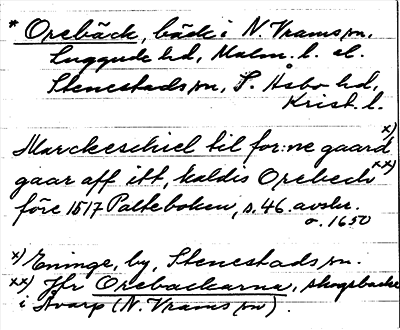 * Orebäck, bäck i N. Vrams sn,
Luggude hd, Malm. l. el.
Stenestads sn, S. Åsbo hd,
Krist. l.
Marckeschiel til for:ne gaard x)
gaar aff itt, kaldis Orebech xx)
före 1517 Palteboken, s. 46. avskr.
o. 1650
x) Eninge, by, Stenestads sn.
xx) Jfr Orebackarna, skogsbackar
i Svarp (N. Vrams sn).